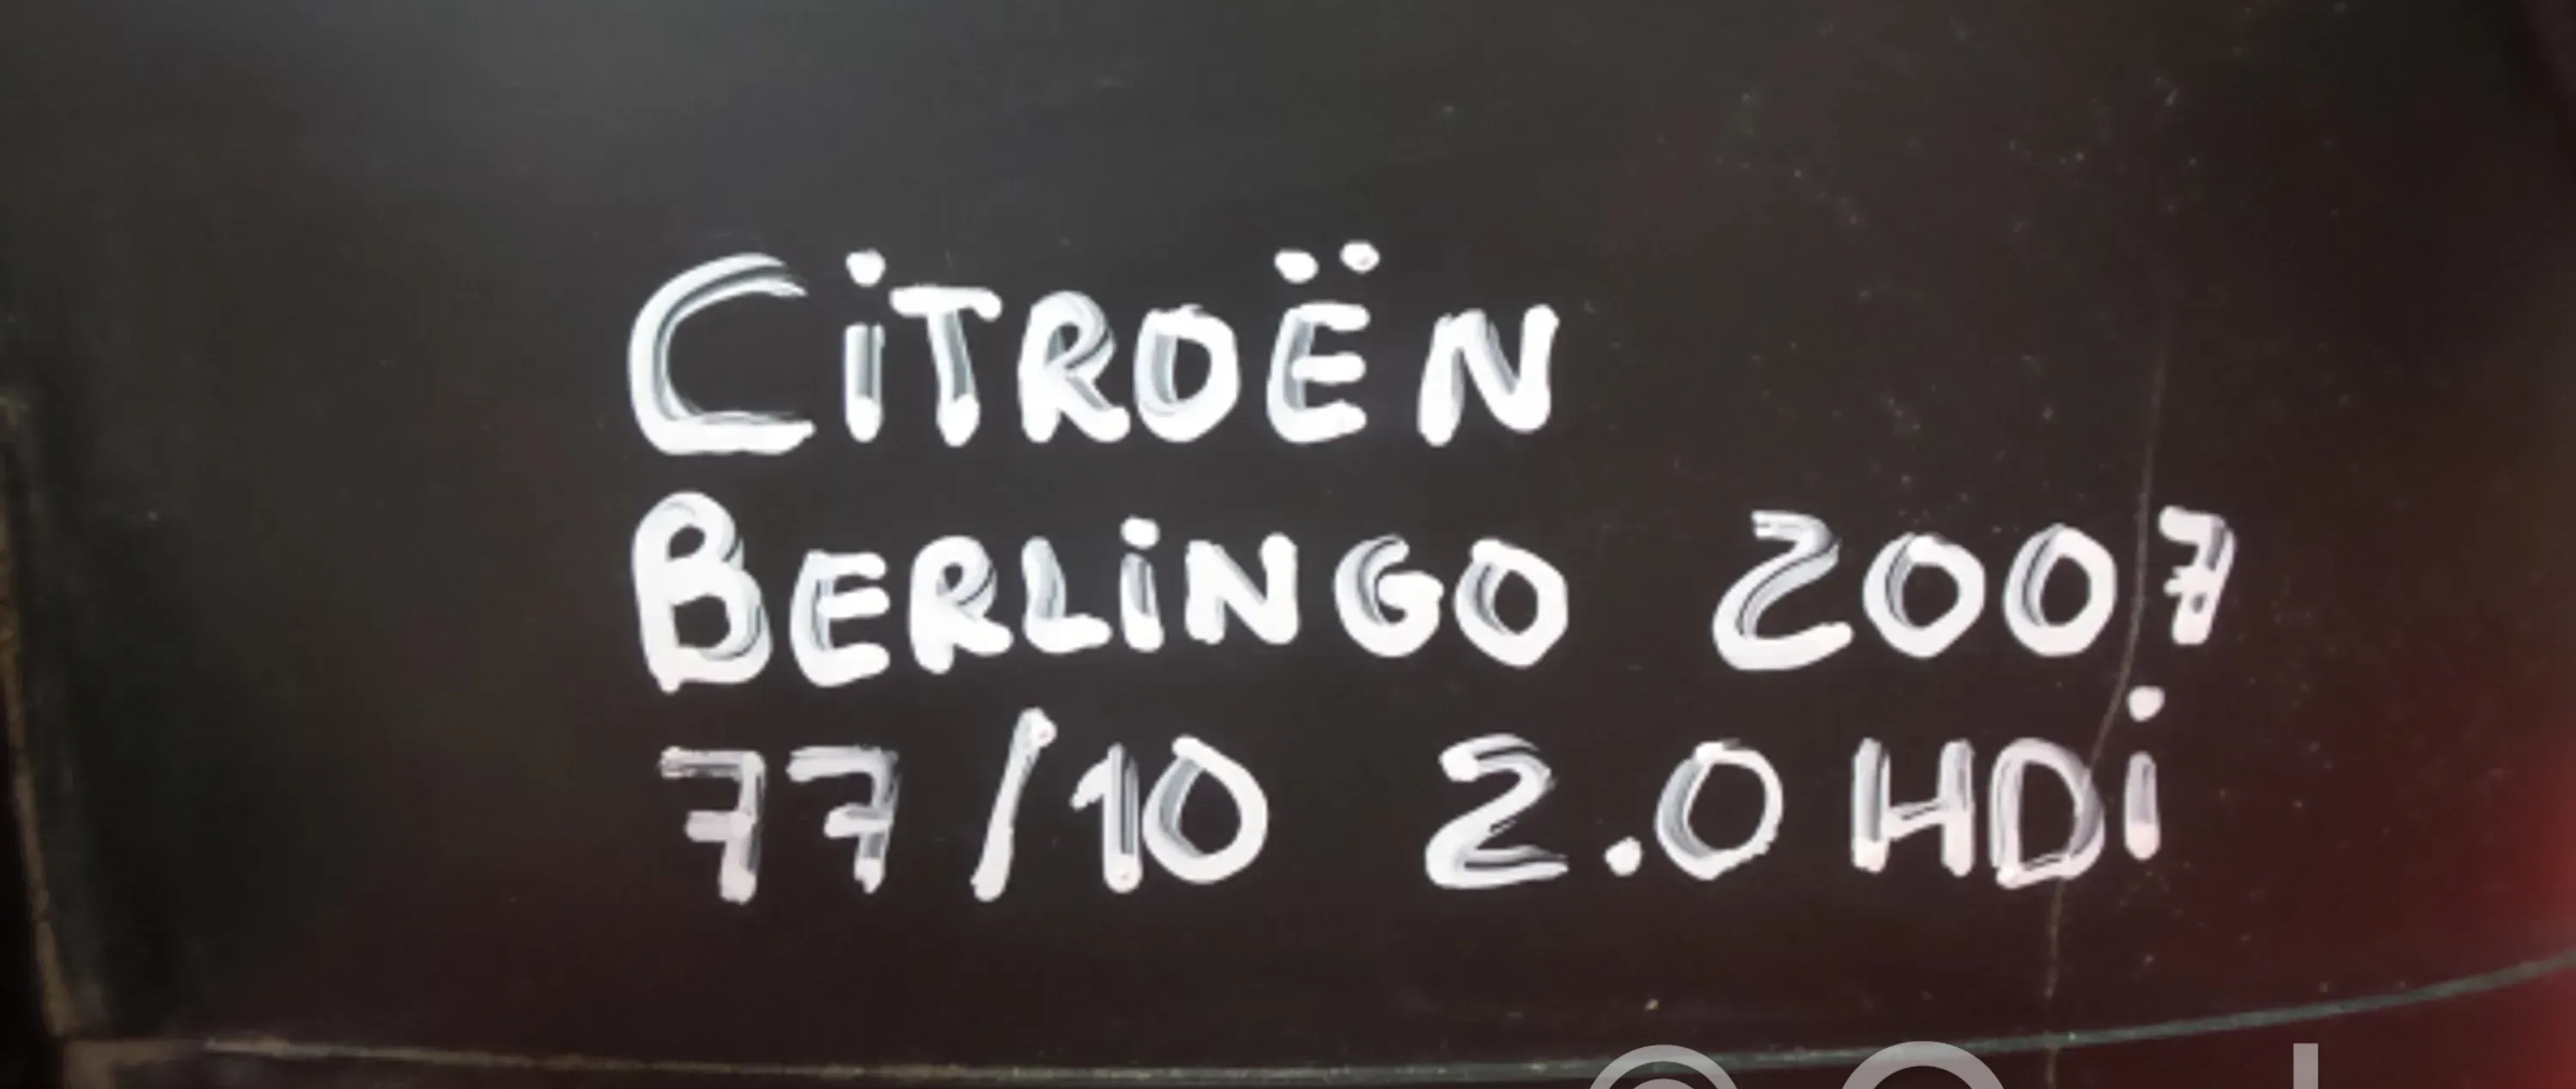 CiTROËN
BERLiNGO 2007
77/10 2.0 HDi